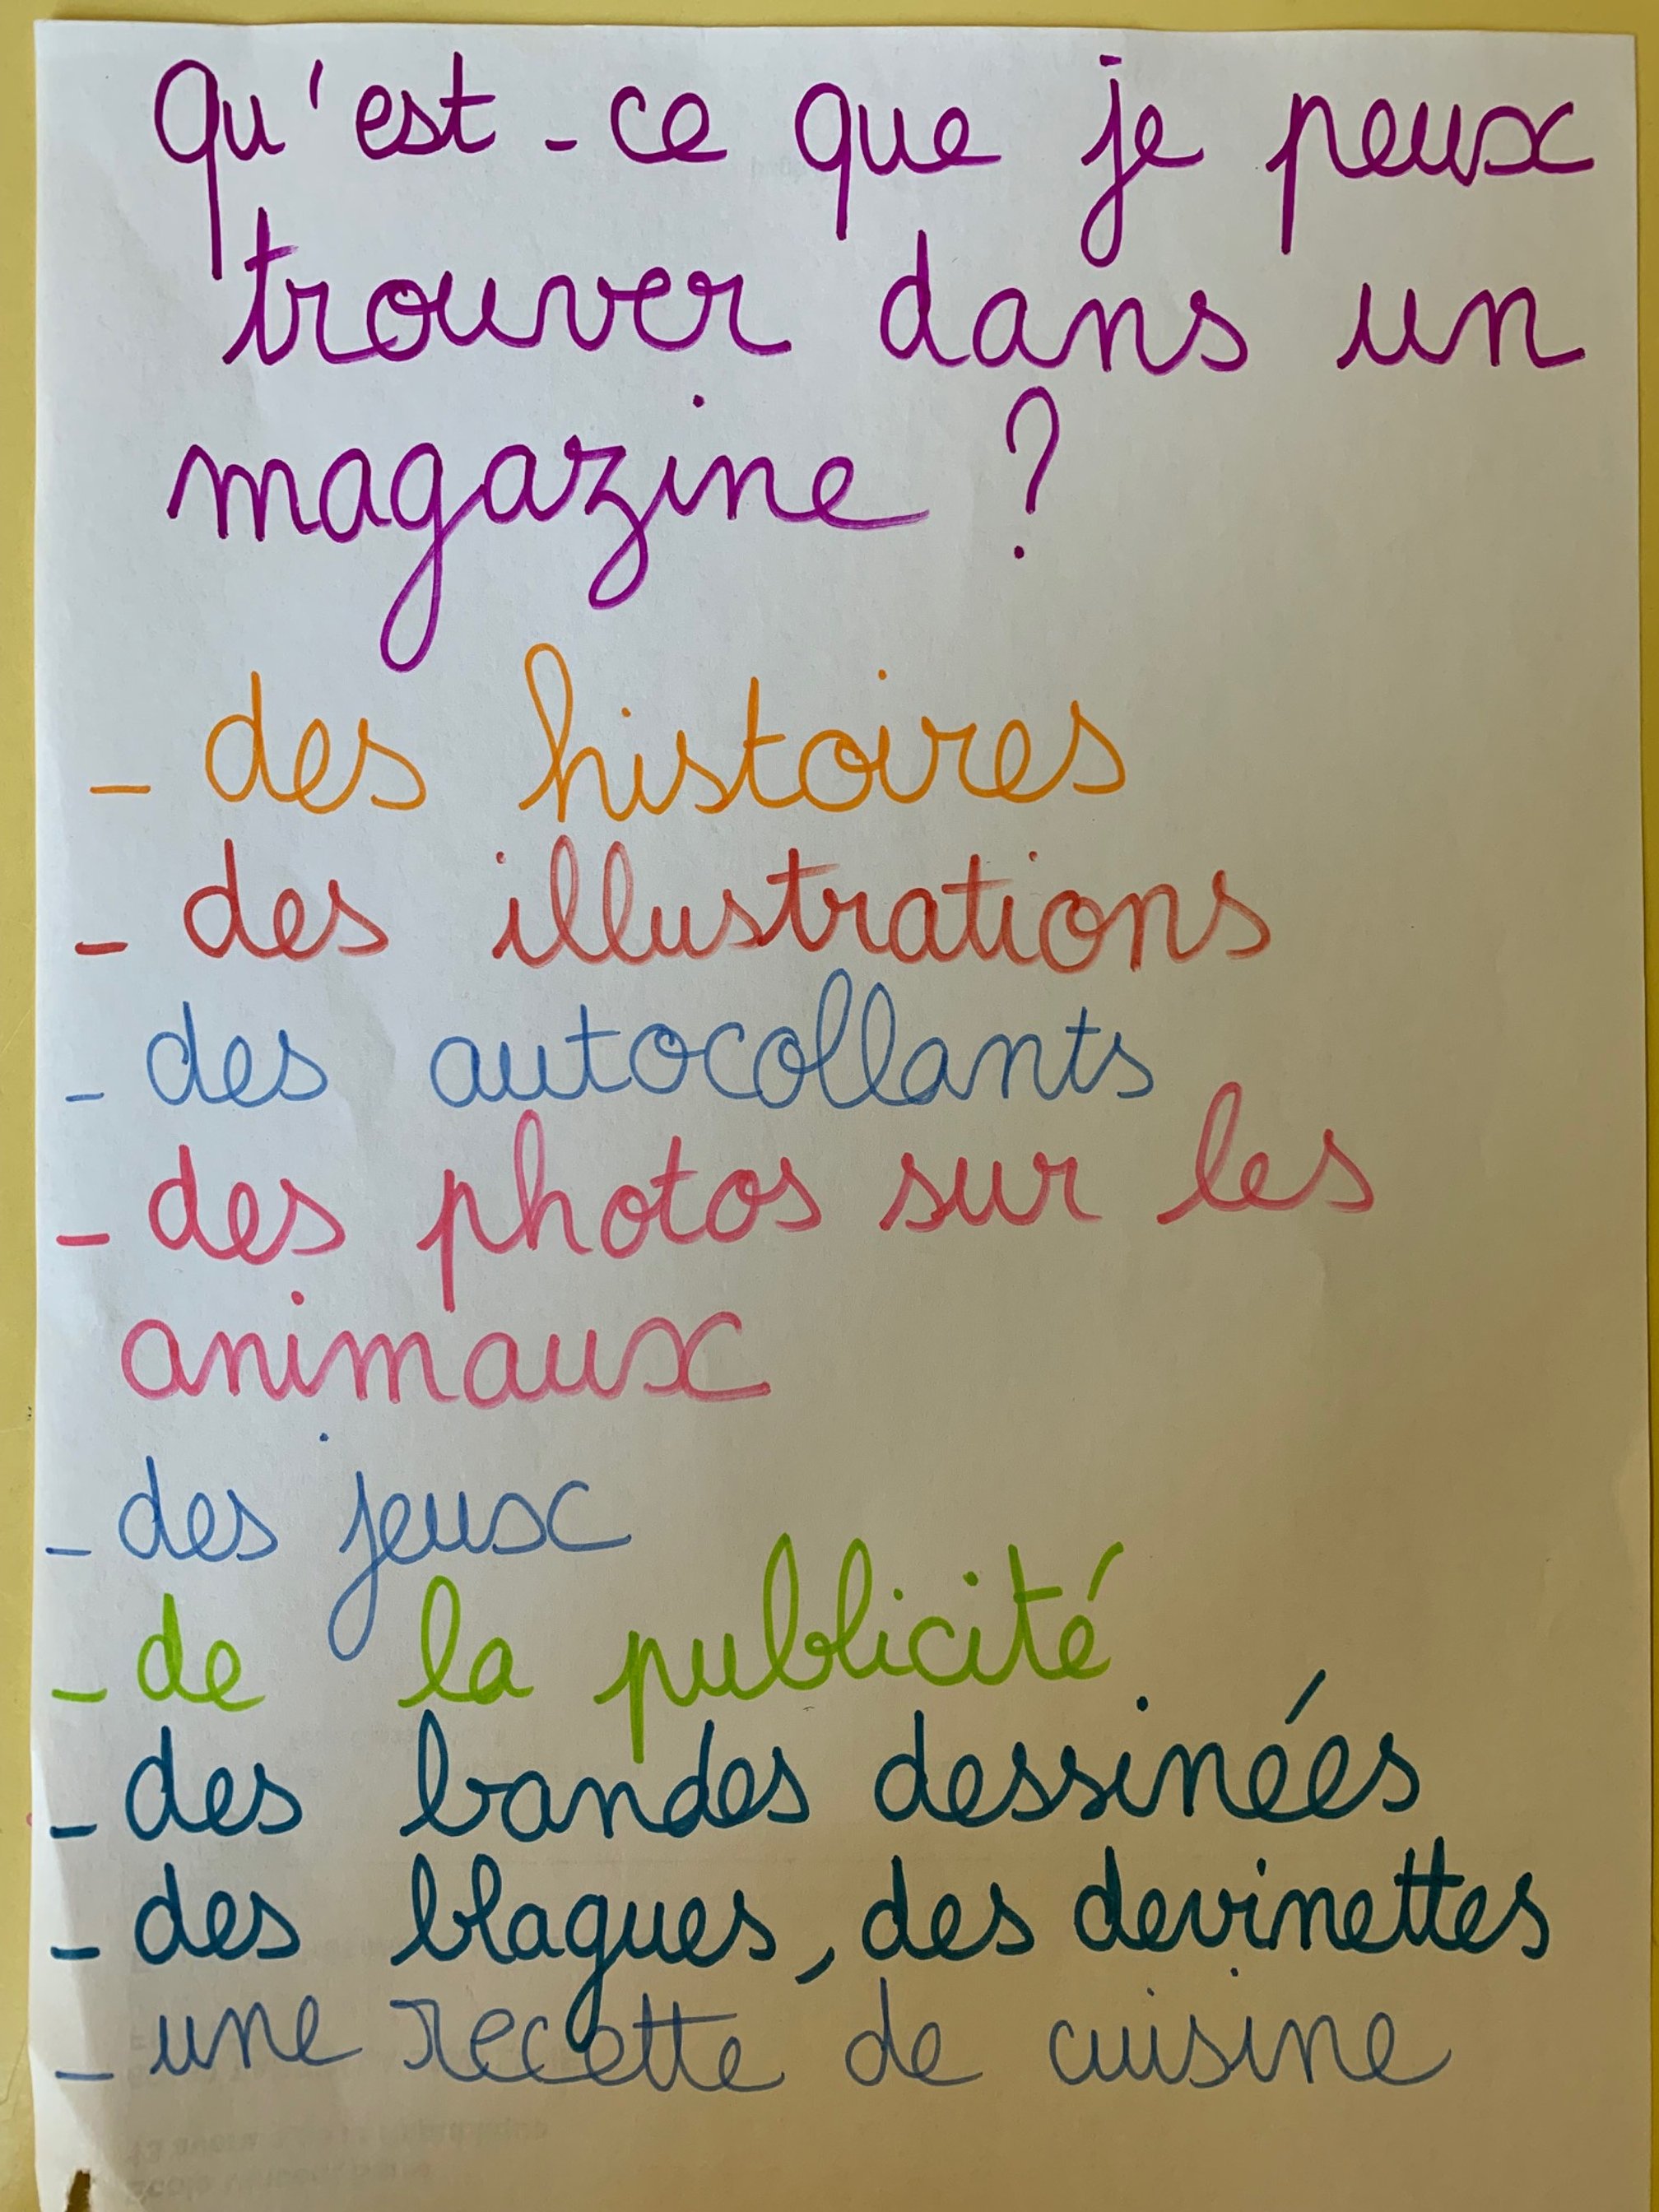 Qu'est-ce que je peux
trouver dans un
magazine ?
- des histoires
- des illustrations
- des autocollants
- des photos sur les
animaux
- des jeux
- de la publicité
- des bandes dessinées
- des blagues, des devinettes
- une recette de cuisine